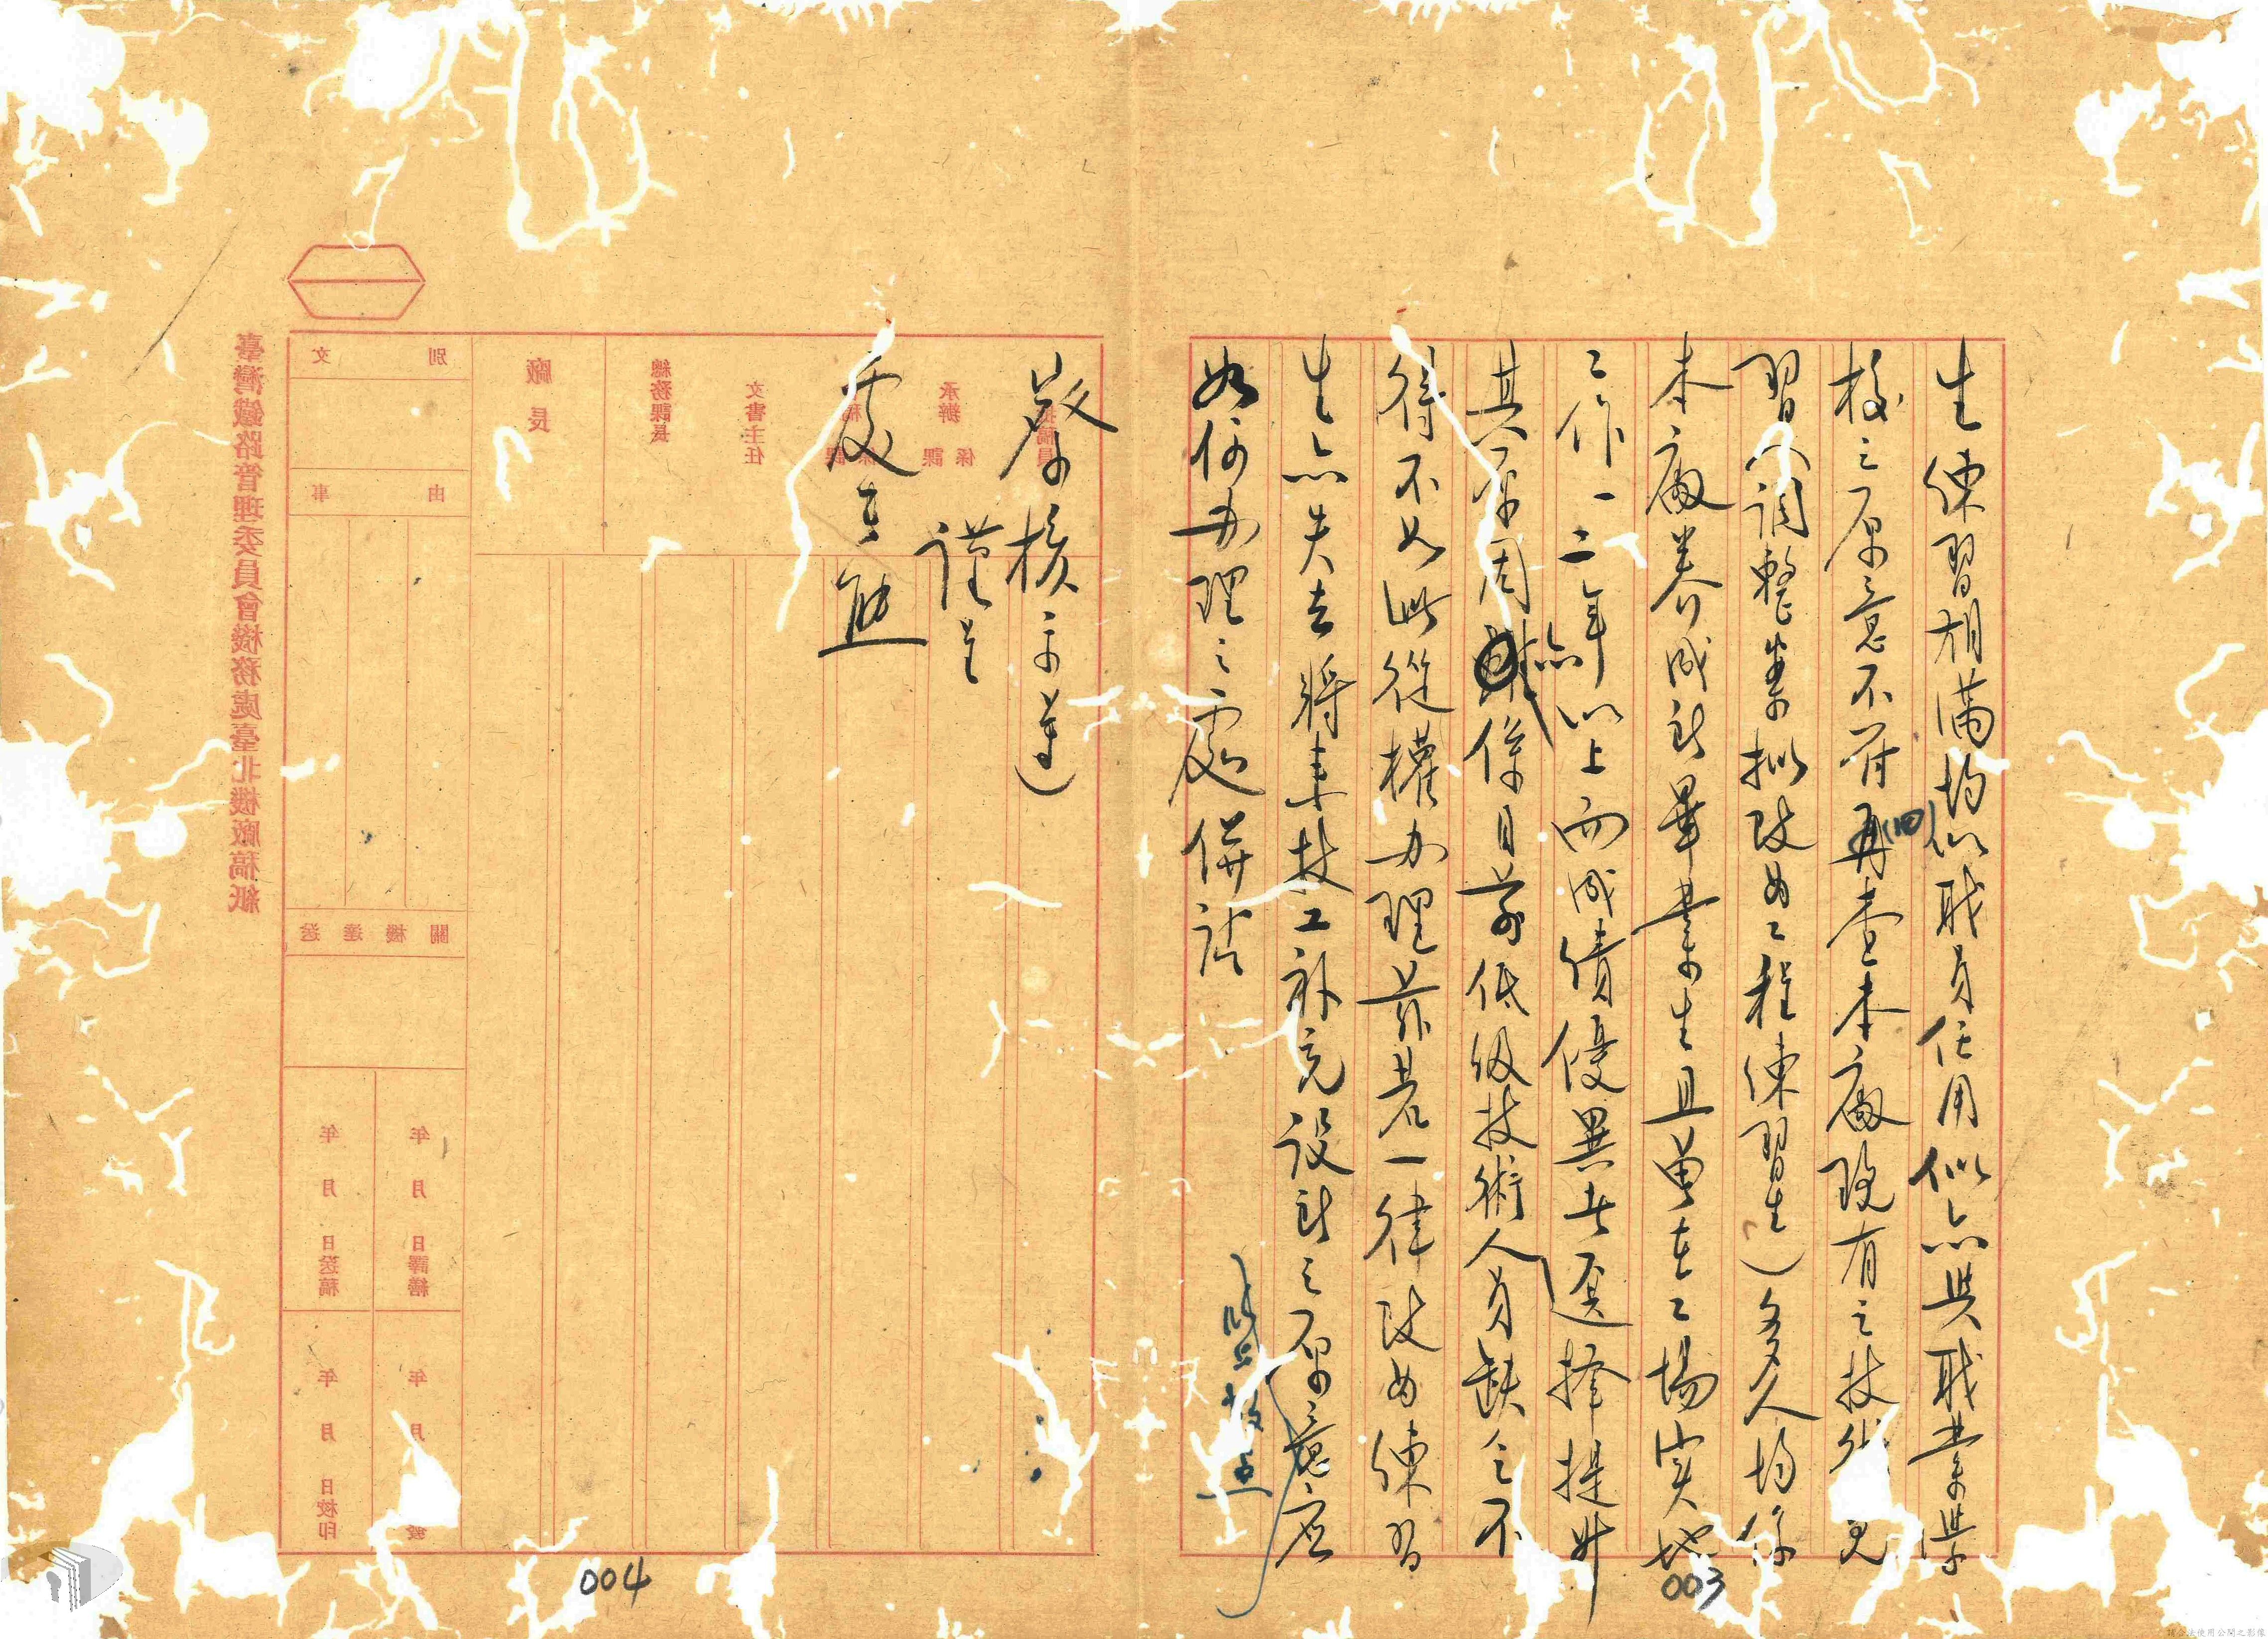 生練習期滿均以職員任用似亦與職業學
校之原意不符(四)再查本廠現有之技術見
習(八調整案擬改為工程練習生)多人均係
本廠養成所畢業生且曾在工場实地
工作一二年以上而成績優異者選擇提升
其原因亦係目前低級技術人員缺乏不
得不如此從權办理前若一律改為練習
生亦失去將來技工補充設計之原意应
如何办理之處併請
詧核示遵)
謹呈
處長熊
臺灣鐵路管理委員會機務處臺北機廠稿紙
文別
事由
送達機關
廠長
總務課長
文書主任
承辦
課係
擬稿員
年月日譯繕
年月日送稿
年月
年月日校印
003
004